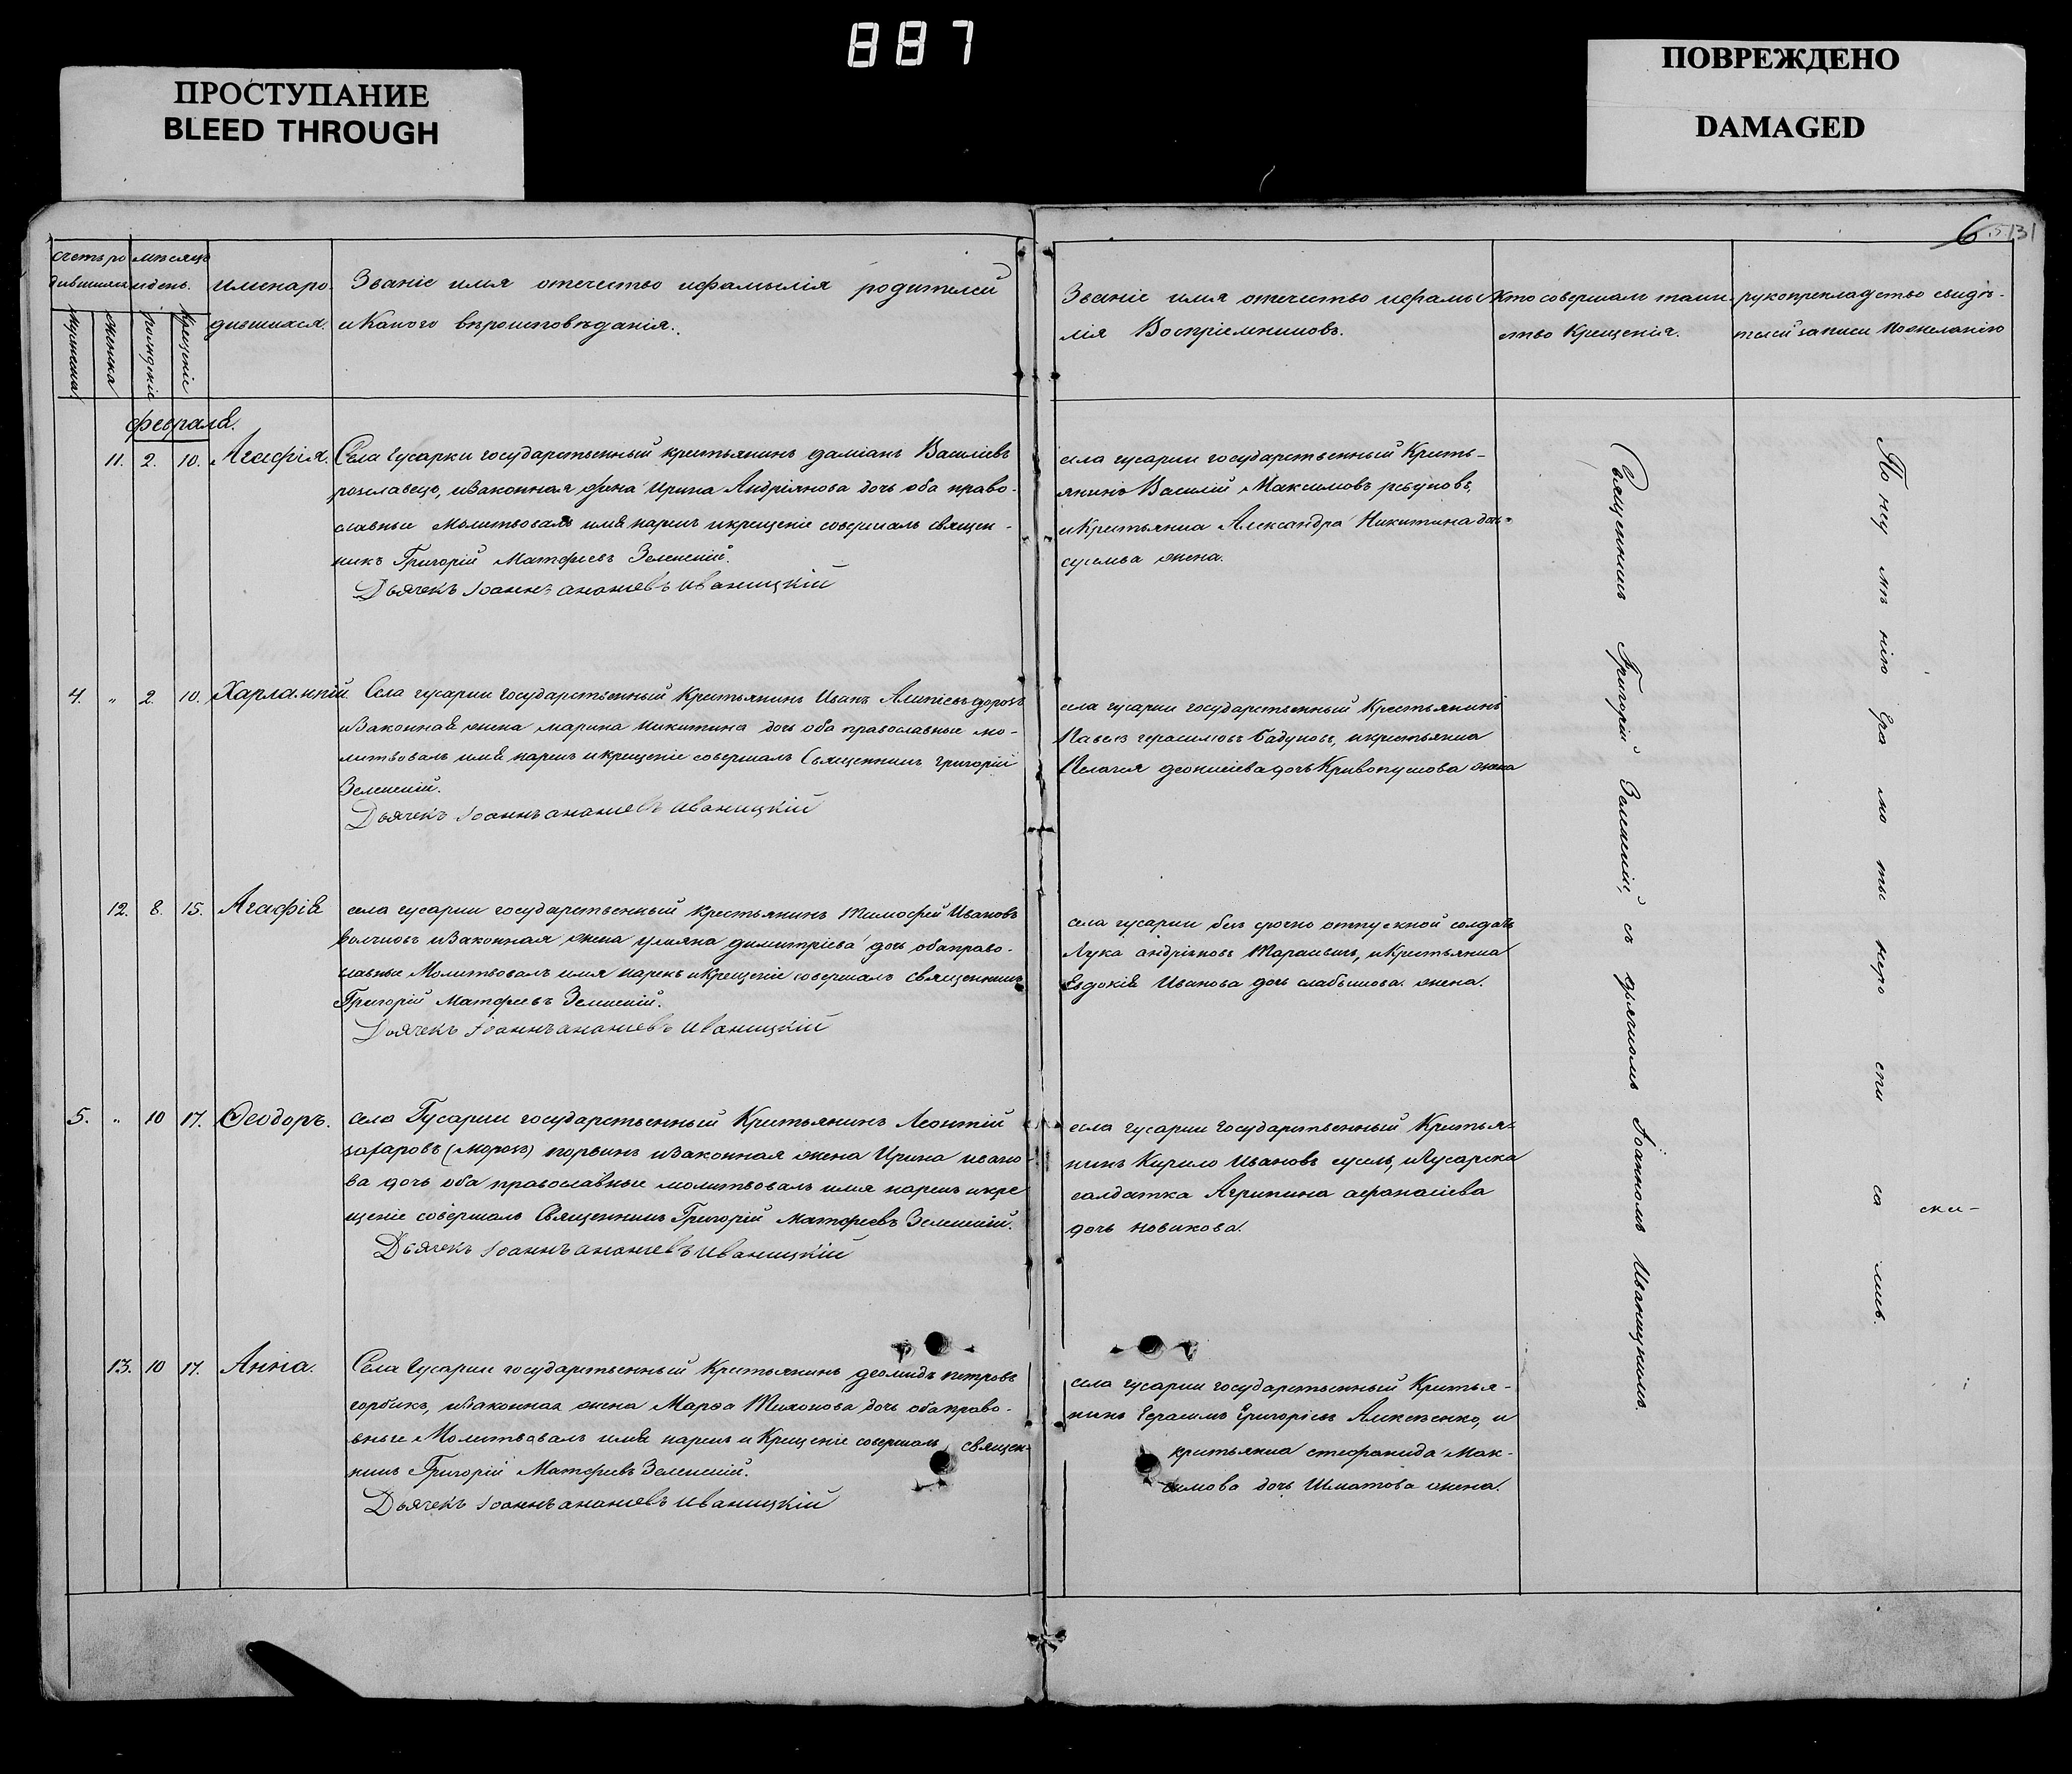 887
ПРОСТУПАНИЕ
BLEED THROUGH
ПОВРЕЖДЕНО
DAMAGED
6
131
счетъ ро
дившихся
мѣсяцъ
и день.
имена ро
дившихся.
Званіе имя отечество и фамилія родителей
и Какого вѣроисповѣданія.
мужеска
женска
рожденіе
крещеніе
Званіе имя отечество и фами
лія Воспріемниковъ.
Кто совершалъ таин
ство Крещенія.
рукоприкладство свидѣ-
телей записи по желанію
февраля.
11. 2. 10. Агафія. Села Гусарки государственный крестьянинъ даміанъ Василіевъ
и законная жена Ирина Андріянова дочь оба право-
славные Молитвовалъ имя нарекъ и крещеніе совершалъ священ-
никъ Григорій Матфеевъ Зеленскій.
Дьячекъ Іоаннъ ананіевъ Иваницкій
села гусарки государственный Кресть-
янинъ Василій Максимовъ
и Крестьянка Александра Никитина дочь
жена.
4. „ 2. 10. Харлампій. Села гусарки государственный Крестьянинъ Иванъ Алипіевъ
и Законная жена марина никитина дочь оба православные мо-
литвовалъ имя нарекъ и крещеніе совершалъ Священникъ григорій
Зеленскій.
Дьячекъ Іоаннъ ананіевъ Иваницкій
села гусарки государственный Крестьянинъ
Павелъ герасимовъ бадуновъ, и крестьянка
Пелагея деонисіева дочь Кривопускова жена
12. 8. 15. Агафія села гусарки государственный крестьянинъ Тимофей Ивановъ
волчковъ и Законная жена уліяна димитріева дочь оба право-
славные Молитвовалъ имя нарекъ и Крещеніе совершалъ священникъ
Григорій Матфеевъ Зеленскій.
Дьячекъ Іоаннъ ананіевъ Иваницкій
села гусарки без срочно отпускной солдатъ
Лука андріяновъ и Крестьянка
Евдокія Иванова дочь жена.
5. „ 10 17. Ѳеодоръ. села Гусарки государственный Крестьянинъ Леонтій
захаровъ (морозъ) и законная жена Ирина ивано-
ва дочь оба православные молитвовалъ имя нарекъ и кре
щеніе совершалъ Священникъ Григорій матфеевъ Зеленскій.
Дьячекъ Іоаннъ ананіевъ Иваницкій
села гусарки государственный Крестья-
нинъ Кирило Ивановъ сусль, и Гусарска
салдатка Агрипина афанасіева
дочь новикова.
13. 10 17. Анна. Села Гусарки государственный Крестьянинъ деомидъ петровъ
горбикъ, и Законная жена Марѳа Тихонова дочь оба право-
вные Молитвовалъ имя нарекъ и Крещеніе совершалъ священ-
никъ Григорій Матфеевъ Зеленскій.
Дьячекъ Іоаннъ ананіевъ Иваницкій
села гусарки государственный Крестья-
нинъ Герасимъ Григоріевъ Алексѣенко, и
крестьянка стефанида Мак-
симова дочь Шматова жена.
Священникъ Григорій Зеленскій, съ дьячкомъ Іоанномъ Иваницкимъ.
По неумѣнію Грамоты неросписались.